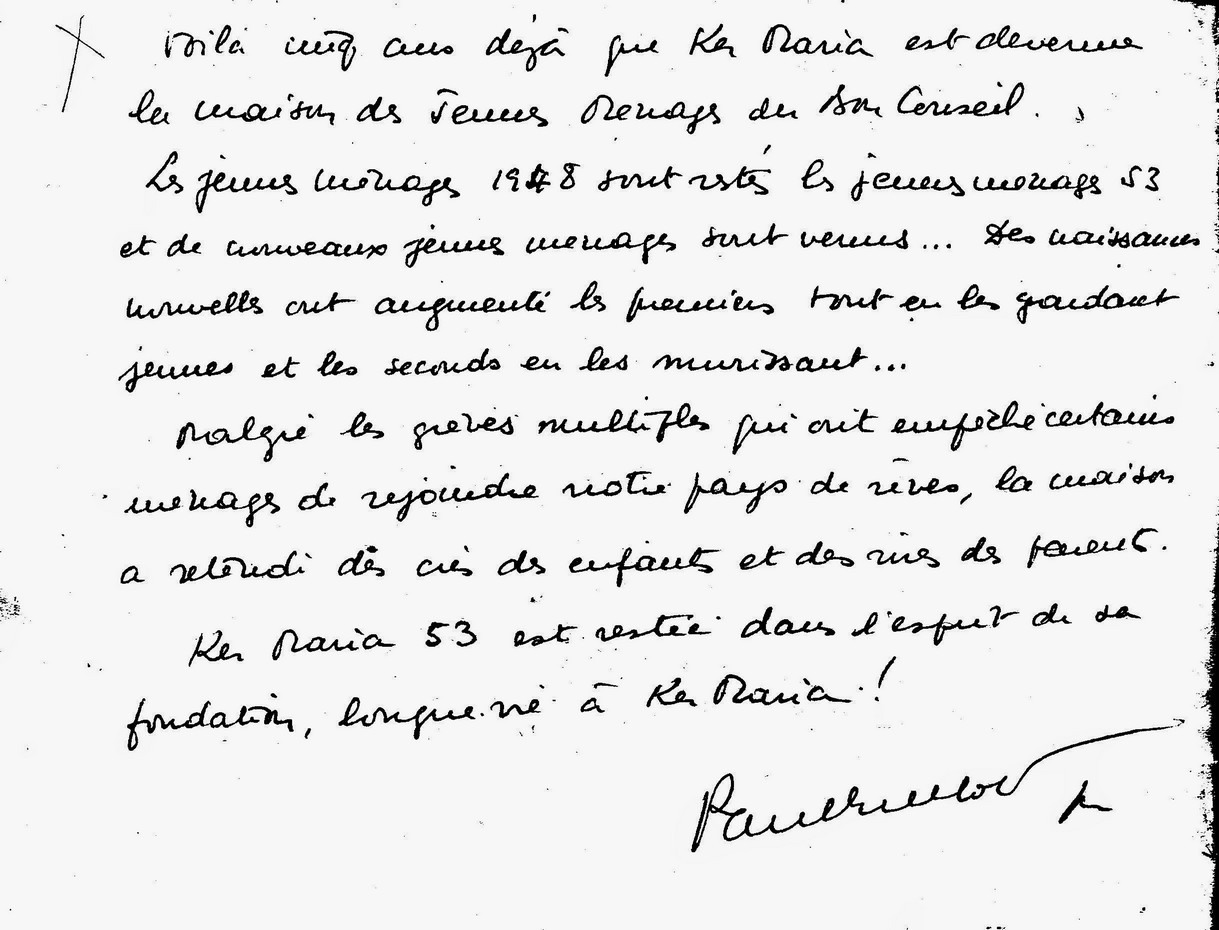 Voilà cinq ans déjà que Ker Maria est devenue
la maison des Jeunes Menages du Bon Conseil.
Les jeunes ménages 1948 sont restés les jeunes menages 53
et de nouveaux jeunes menages sont venus... Des naissances
nouvelles ont augmenté les premiers tout en les gardant
jeunes et les seconds en les murissant...
Malgré les grèves multiples qui ont empêché certains
ménages de rejoindre notre pays de rêves, la maison
a retendi dès cris des enfants et des rires des parents.
Ker Maria 53 est restée dans l'esprit de sa
fondation, longue vie à Ker Maria !